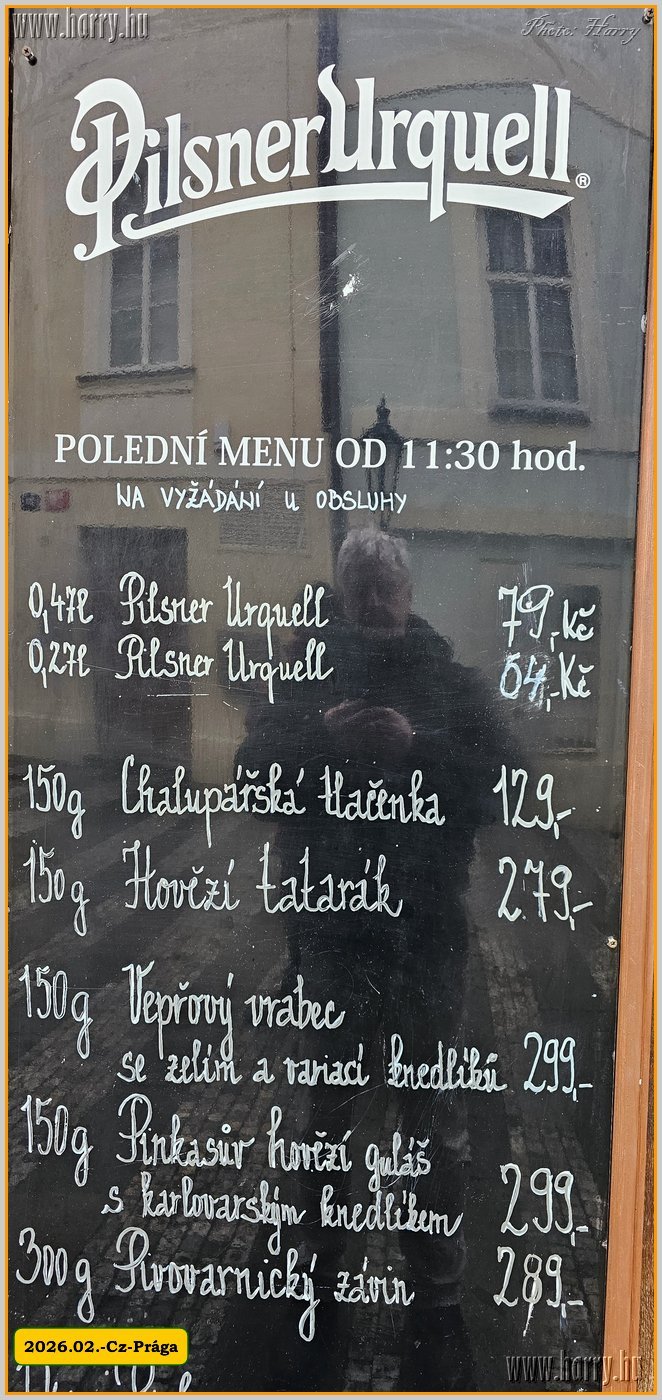 www.harry.hu
Photo: Harry
Pilsner Urquell®
POLEDNÍ MENU OD 11:30 hod.
NA VYŽÁDÁNÍ U OBSLUHY
0,47l Pilsner Urquell 79,-Kč
0,27l Pilsner Urquell 54,-Kč
150g Chalupářská tlačenka 129,-
150g Hovězí tatarák 279,-
150g Vepřový vrabec
se zelím a variací knedlíků 299,-
150g Pinkasův hovězí guláš
s karlovarským knedlíkem 299,-
300g Pivovarnický závin 289,-
2026.02.-Cz-Prága
www.harry.hu